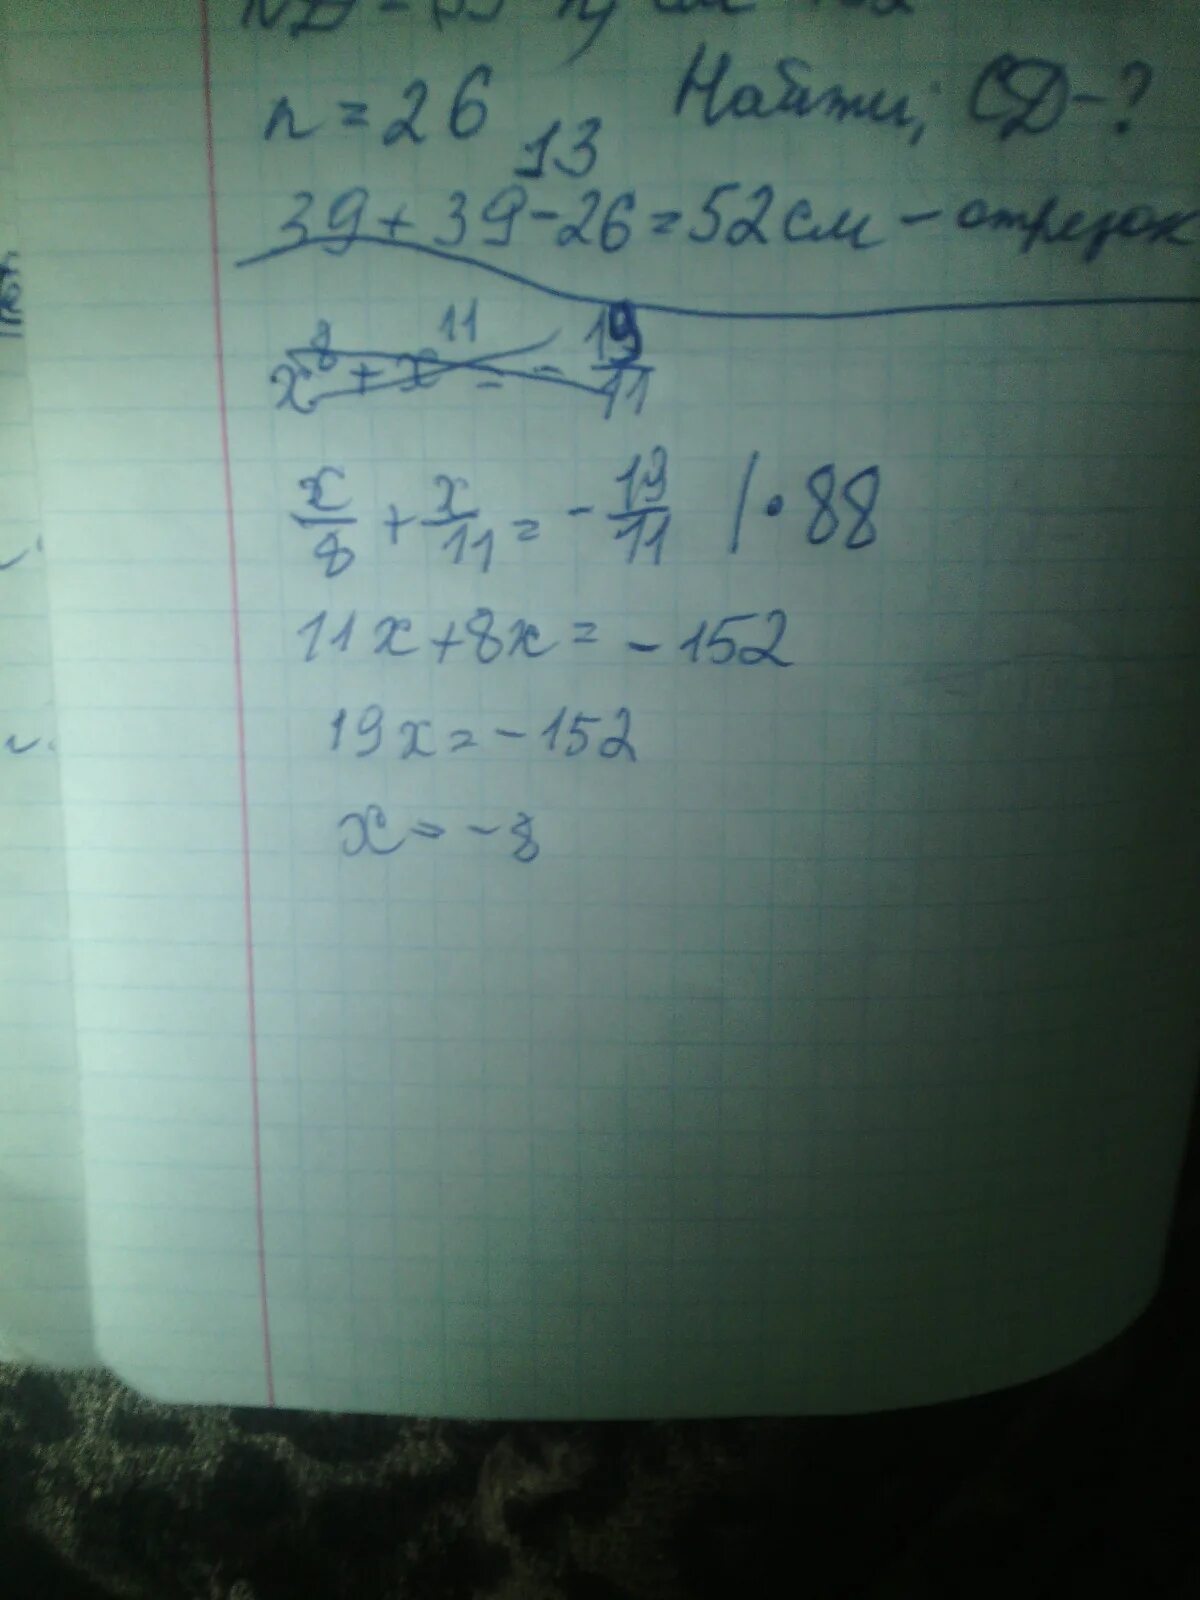 n = 26 Найти; СД - ?
13
39 + 39 - 26 = 52 см - отрезок
x/8 + x/11 = - 19/11 | · 88
11x + 8x = - 152
19x = - 152
x = - 8